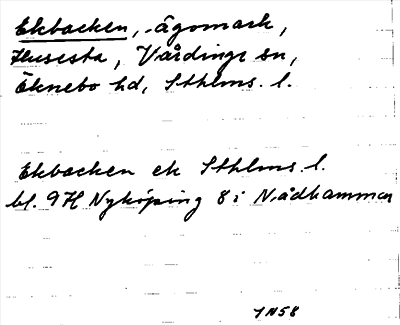 Ekbacken, ägomark,
Husesta, Vårdinge sn,
Öknebo hd, Sthlms. l.
Ekbacken ek Sthlms. l.
bl. 9H Nyköping 8i Nådhammar